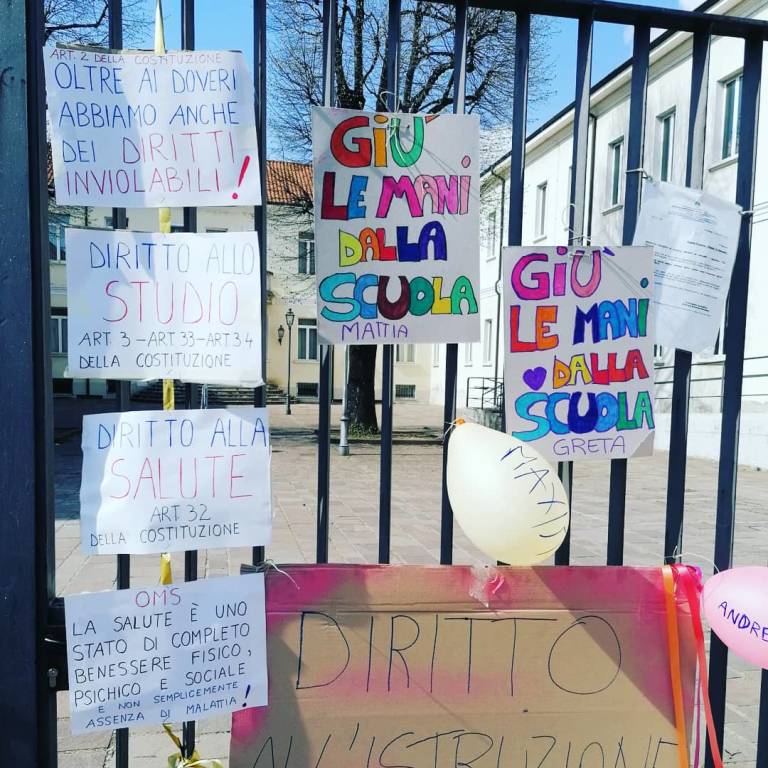 ART. 2 DELLA COSTITUZIONE
OLTRE AI DOVERI
ABBIAMO ANCHE
DEI DIRITTI
INVIOLABILI!
DIRITTO ALLO
STUDIO
ART. 3 - ART. 33 - ART. 34
DELLA COSTITUZIONE
DIRITTO ALLA
SALUTE
ART. 32
DELLA COSTITUZIONE
OMS
LA SALUTE È UNO
STATO DI COMPLETO
BENESSERE FISICO,
PSICHICO E SOCIALE
E NON SEMPLICEMENTE
ASSENZA DI MALATTIA!
GIÙ
LE MANI
DALLA
SCUOLA
MATTIA
GIÙ
LE MANI
DALLA
SCUOLA
GRETA
DIRITTO
ALL'ISTRUZIONE
ANDRE